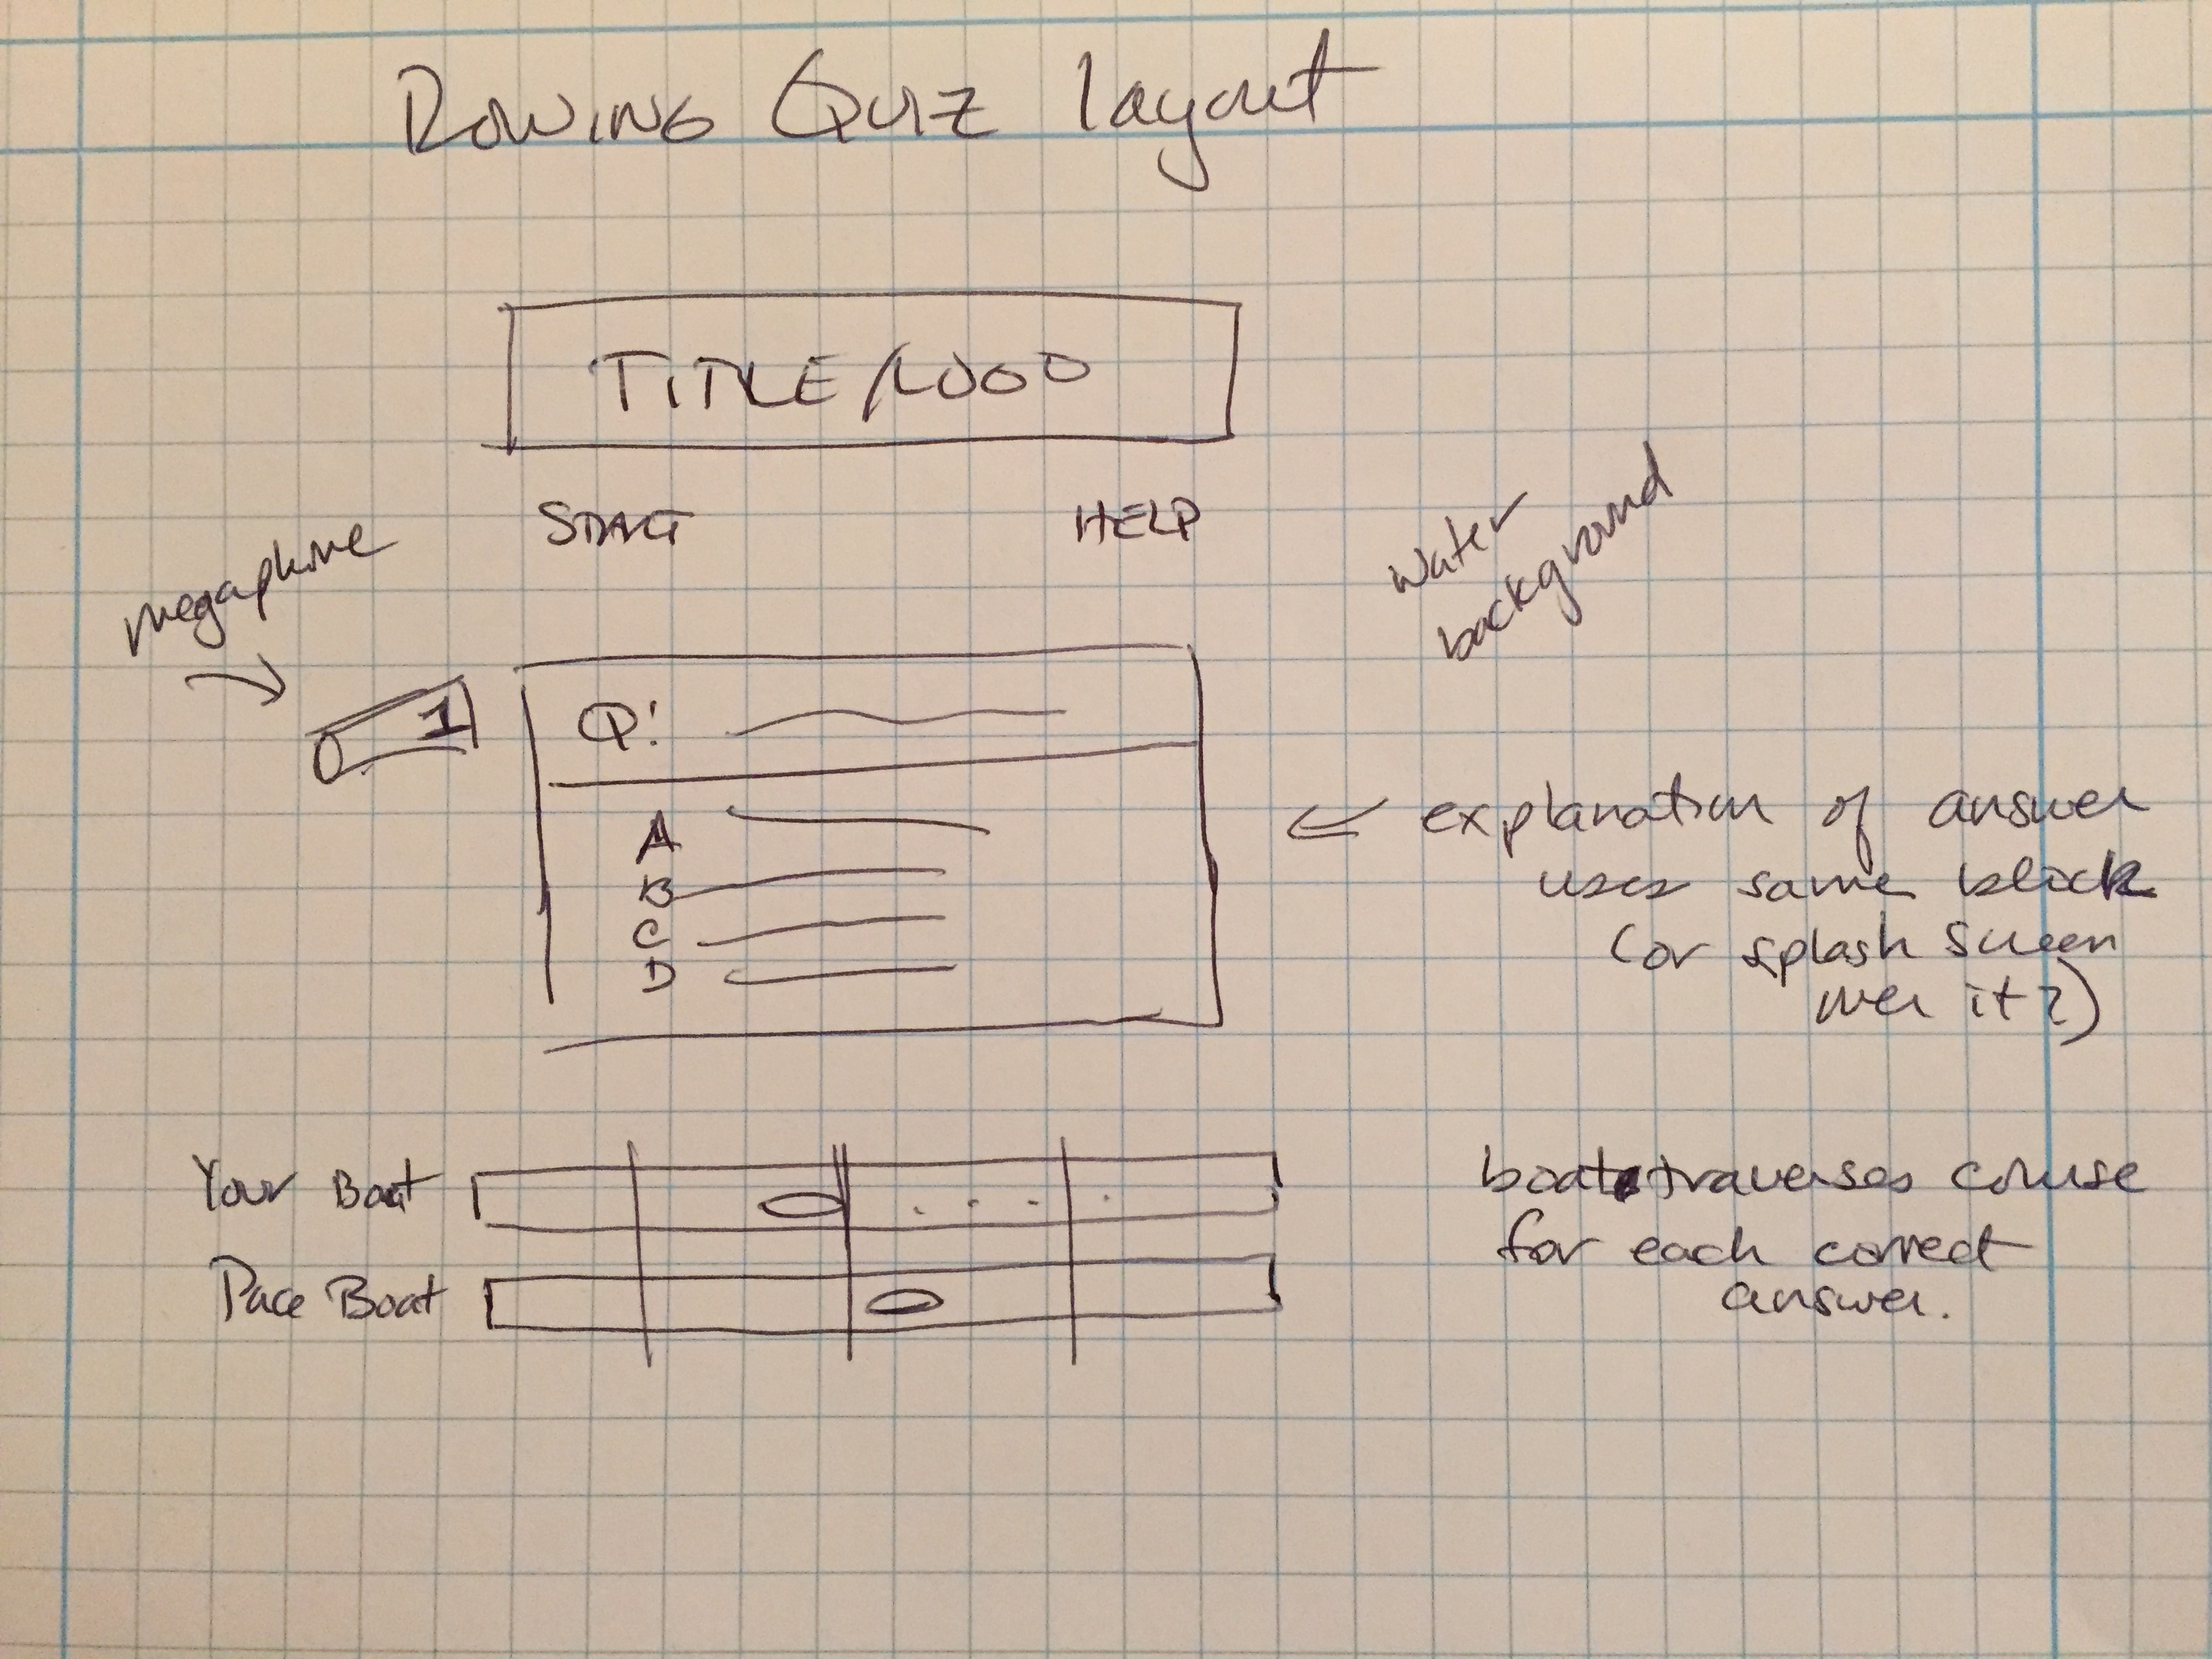 Rowing Quiz layout
TITLE/LOGO
START HELP
megaphone
water
background
1
Q:
A
B
C
D
explanation of answer
uses same block
(or splash screen
over it?)
Your Boat
Pace Boat
boat traverses course
for each correct
answer.